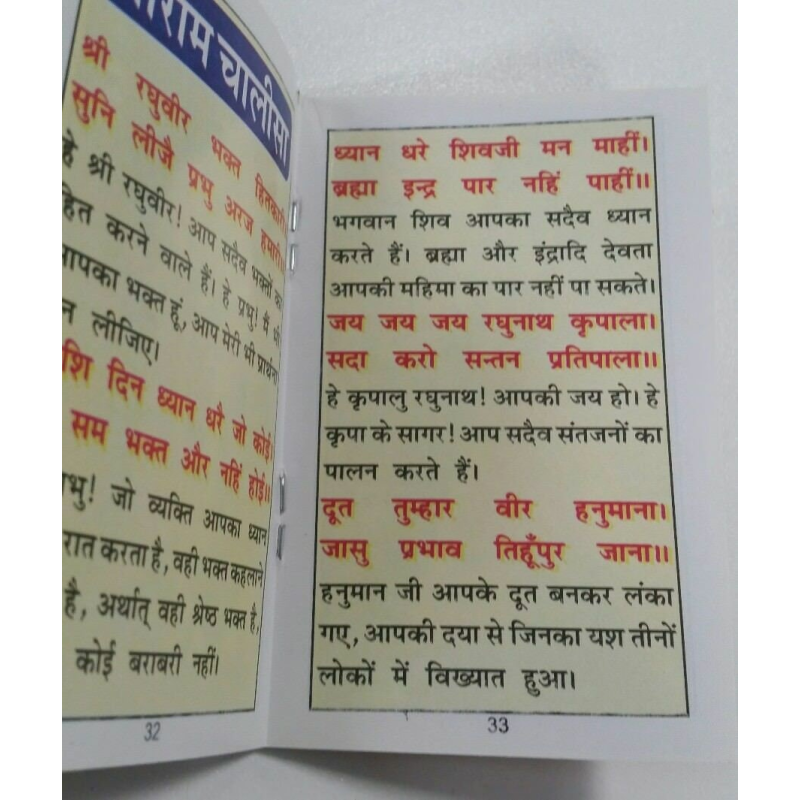 चालीसा
श्री रघुवीर भक्त हितकारी।
सुनि लीजै प्रभु अरज हमारी॥
हे श्री रघुवीर! आप सदैव भक्तों का
हित करने वाले हैं। हे प्रभु! मैं भी
आपका भक्त हूं, आप मेरी भी प्रार्थना
लीजिए।
दिन ध्यान धरै जो कोई।
सम भक्त और नहिं होई॥
जो व्यक्ति आपका ध्यान
रात करता है, वही भक्त कहलाने
है, अर्थात् वही श्रेष्ठ भक्त है,
कोई बराबरी नहीं।
32
ध्यान धरे शिवजी मन माहीं।
ब्रह्मा इन्द्र पार नहिं पाहीं॥
भगवान शिव आपका सदैव ध्यान
करते हैं। ब्रह्मा और इंद्रादि देवता
आपकी महिमा का पार नहीं पा सकते।
जय जय जय रघुनाथ कृपाला।
सदा करो सन्तन प्रतिपाला॥
हे कृपालु रघुनाथ! आपकी जय हो। हे
कृपा के सागर! आप सदैव संतजनों का
पालन करते हैं।
दूत तुम्हार वीर हनुमाना।
जासु प्रभाव तिहूँपुर जाना॥
हनुमान जी आपके दूत बनकर लंका
गए, आपकी दया से जिनका यश तीनों
लोकों में विख्यात हुआ।
33